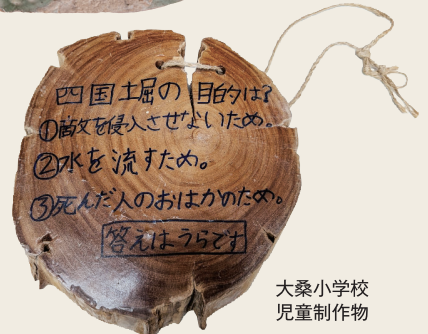 四国堀の目的は?
①敵を侵入させないため。
②水を流すため。
③死んだ人のおはかのため。
答えはうらです
大桑小学校
児童制作物